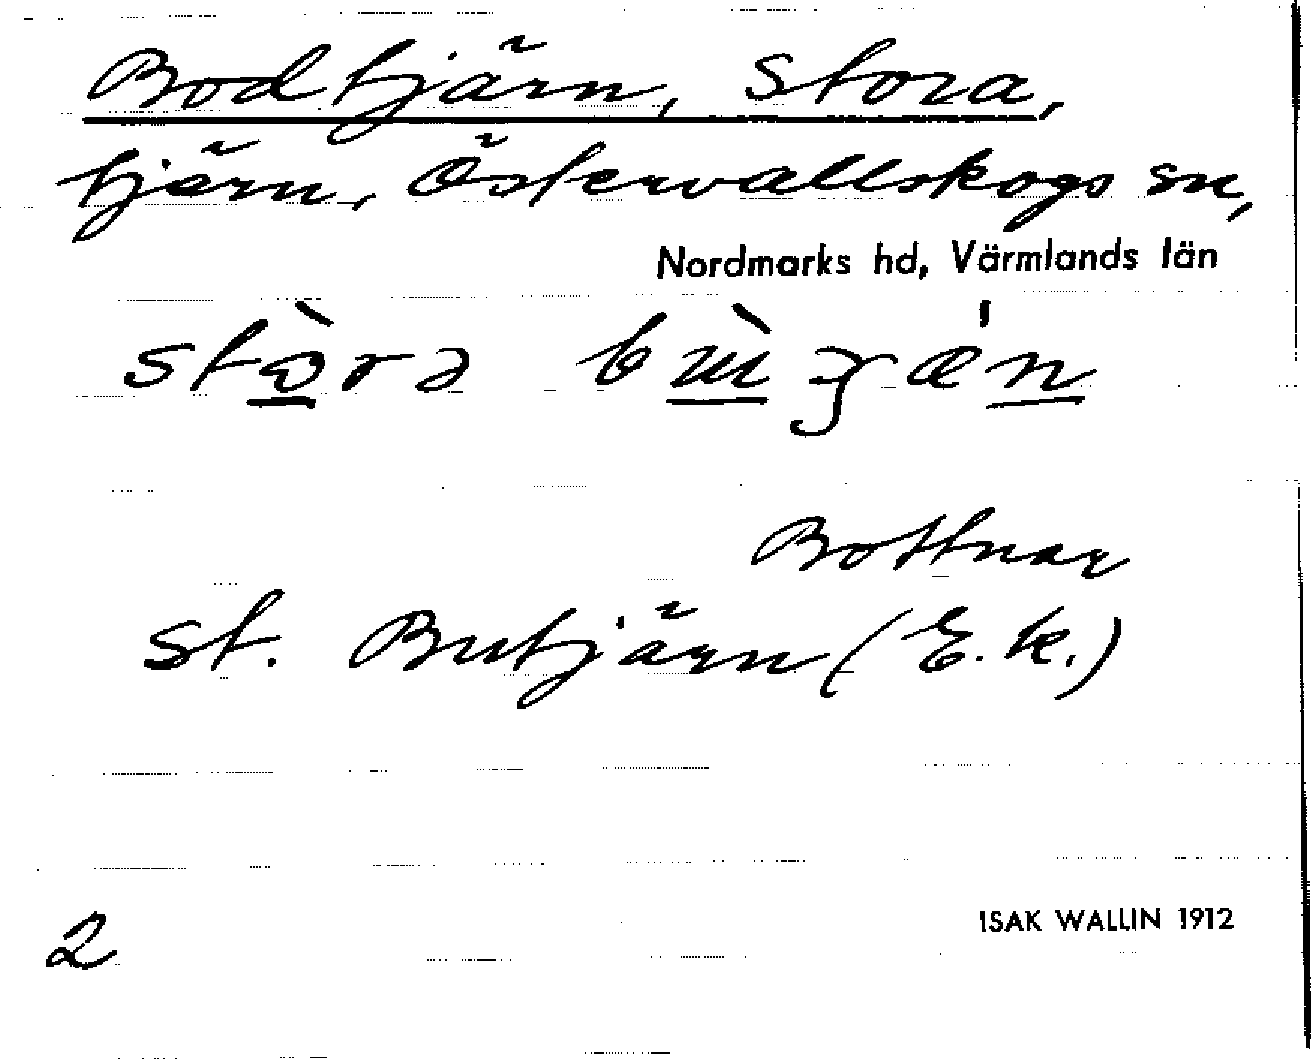 Bodtjärn, Stora,
tjärn, Östervallskogs sn,
Nordmarks hd, Värmlands län
Bottnar
St. Butjärn (E.k.)
2
ISAK WALLIN 1912